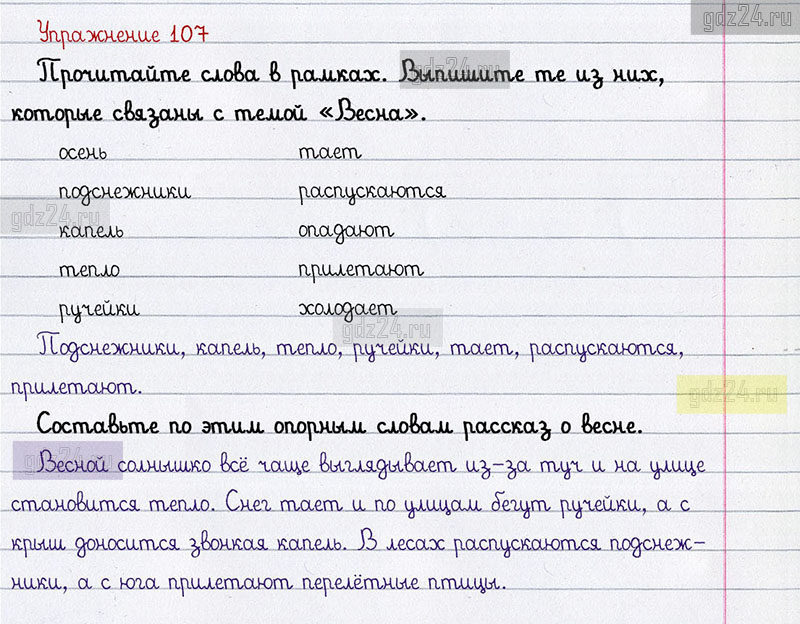 gdz24.ru
Упражнение 107
Прочитайте слова в рамках. Выпишите те из них,
gdz24.ru
которые связаны с темой «Весна».
осень тает
подснежники распускаются
gdz24.ru
капель опадают
тепло прилетают
ручейки холодает
gdz24.ru
Подснежники, капель, тепло, ручейки, тает, распускаются,
прилетают.
gdz24.ru
Составьте по этим опорным словам рассказ о весне.
Весной солнышко всё чаще выглядывает из-за туч и на улице
gdz24.ru
становится тепло. Снег тает и по улицам бегут ручейки, а с
крыш доносится звонкая капель. В лесах распускаются подснеж-
ники, а с юга прилетают перелётные птицы.